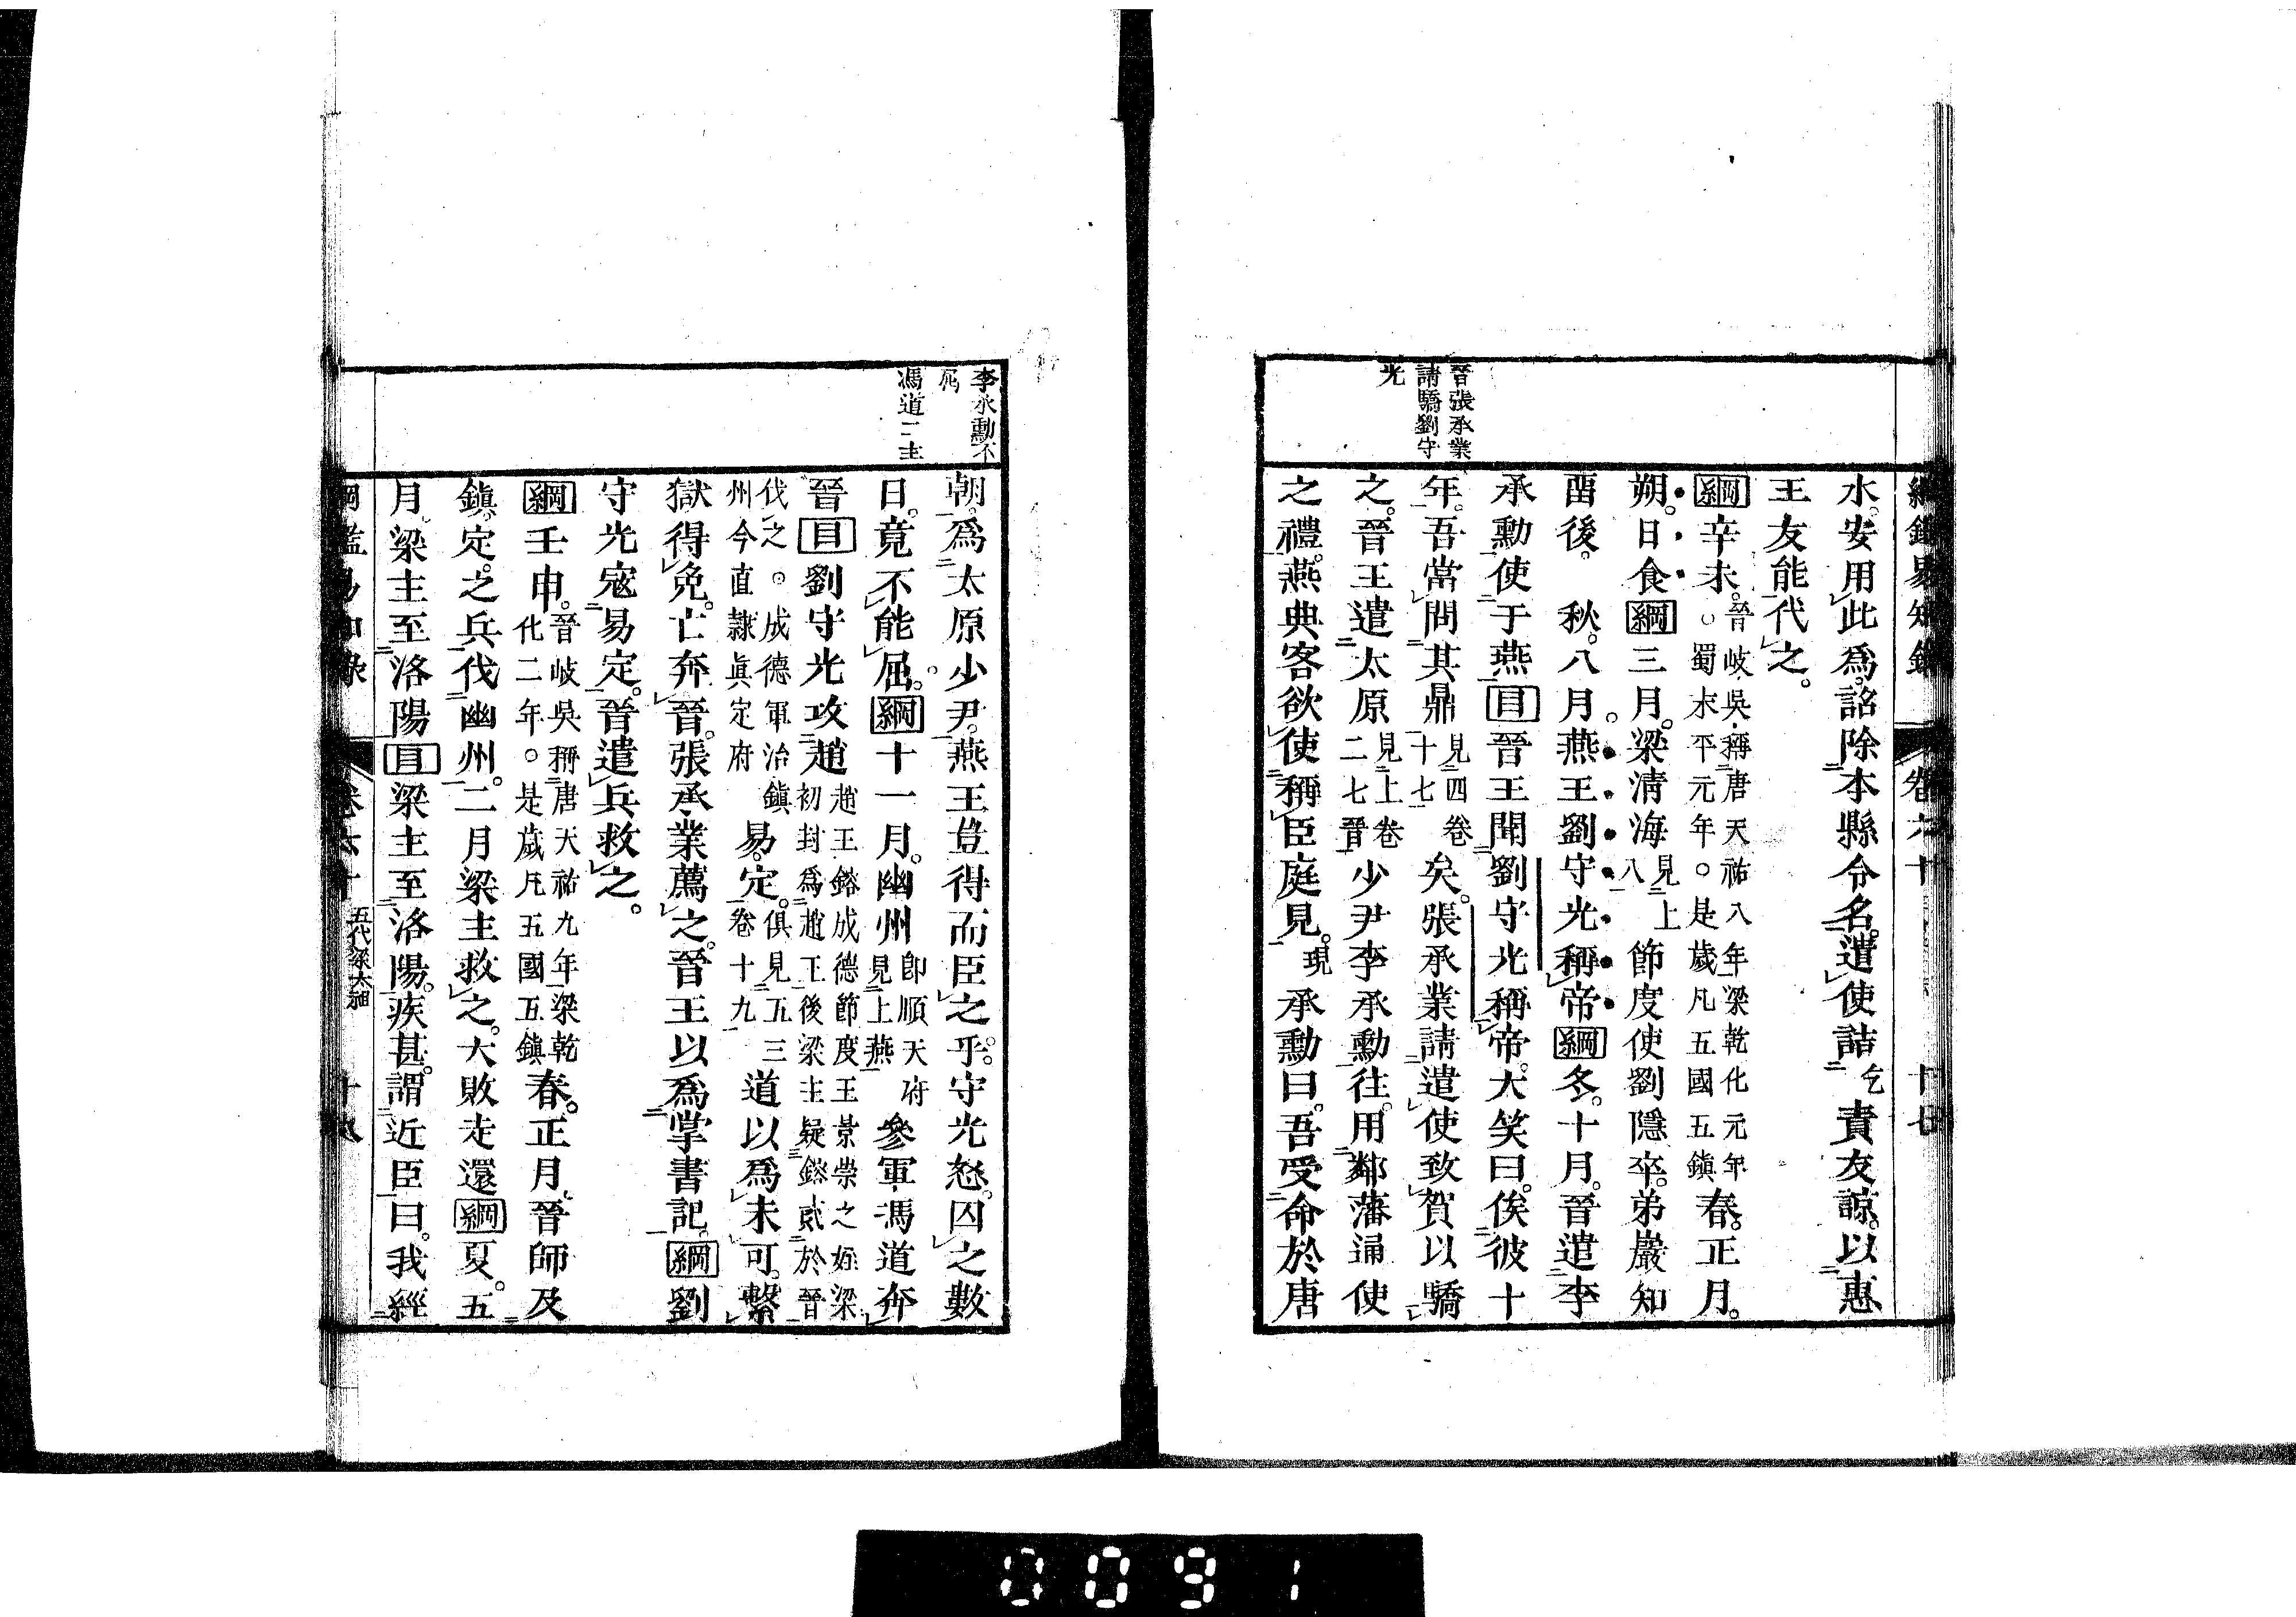 綱鑑易知錄 卷六十
晉張承業
請驕劉守
光
水。安用此爲。詔除本縣令名。遣使詰乞責友諒。以惠
王友能代之。
綱辛未。晉岐吳稱唐天祐八年梁乾化元年
○蜀永平元年○是歲凡五國五鎮春。正月。
朔。日食綱三月。梁淸海見上
八節度使劉隱卒。弟巖知
畱後。秋。八月。燕王劉守光稱帝綱冬。十月。晉遣李
承勳使于燕目晉王聞劉守光稱帝。大笑曰。俟彼十
年。吾當問其鼎見四卷
十七矣。張承業請遣使致賀以驕
之。晉王遣太原見上卷
二七晉少尹李承勳往。用鄰藩通使
之禮。燕典客欲使稱臣庭見。現承勳曰。吾受命於唐
李承勳不
屈
馮道二主
朝。爲太原少尹。燕王豈得而臣之乎。守光怒。囚之數
日。竟不能屈。綱十一月。幽州卽順天府
見上燕參軍馮道奔
晉目劉守光攻趙趙王鎔成德節度王景崇之姪梁
初封爲趙王後梁主疑鎔貳於晉
伐之○成德軍治鎮
州今直隸眞定府易。定。俱見五三
卷十九道以爲未可。繫
獄得免。亡奔晉。張承業薦之。晉王以爲掌書記。綱劉
守光寇易定。晉遣兵救之。
綱壬申。晉岐吳稱唐天祐九年梁乾
化二年○是歲凡五國五鎮春。正月。晉師及
鎮。定。之兵伐幽州。二月梁主救之。大敗走還綱夏。五
月。梁主至洛陽目梁主至洛陽。疾甚。謂近臣曰。我經
綱鑑易知錄 卷六十 五代梁太祖
0091